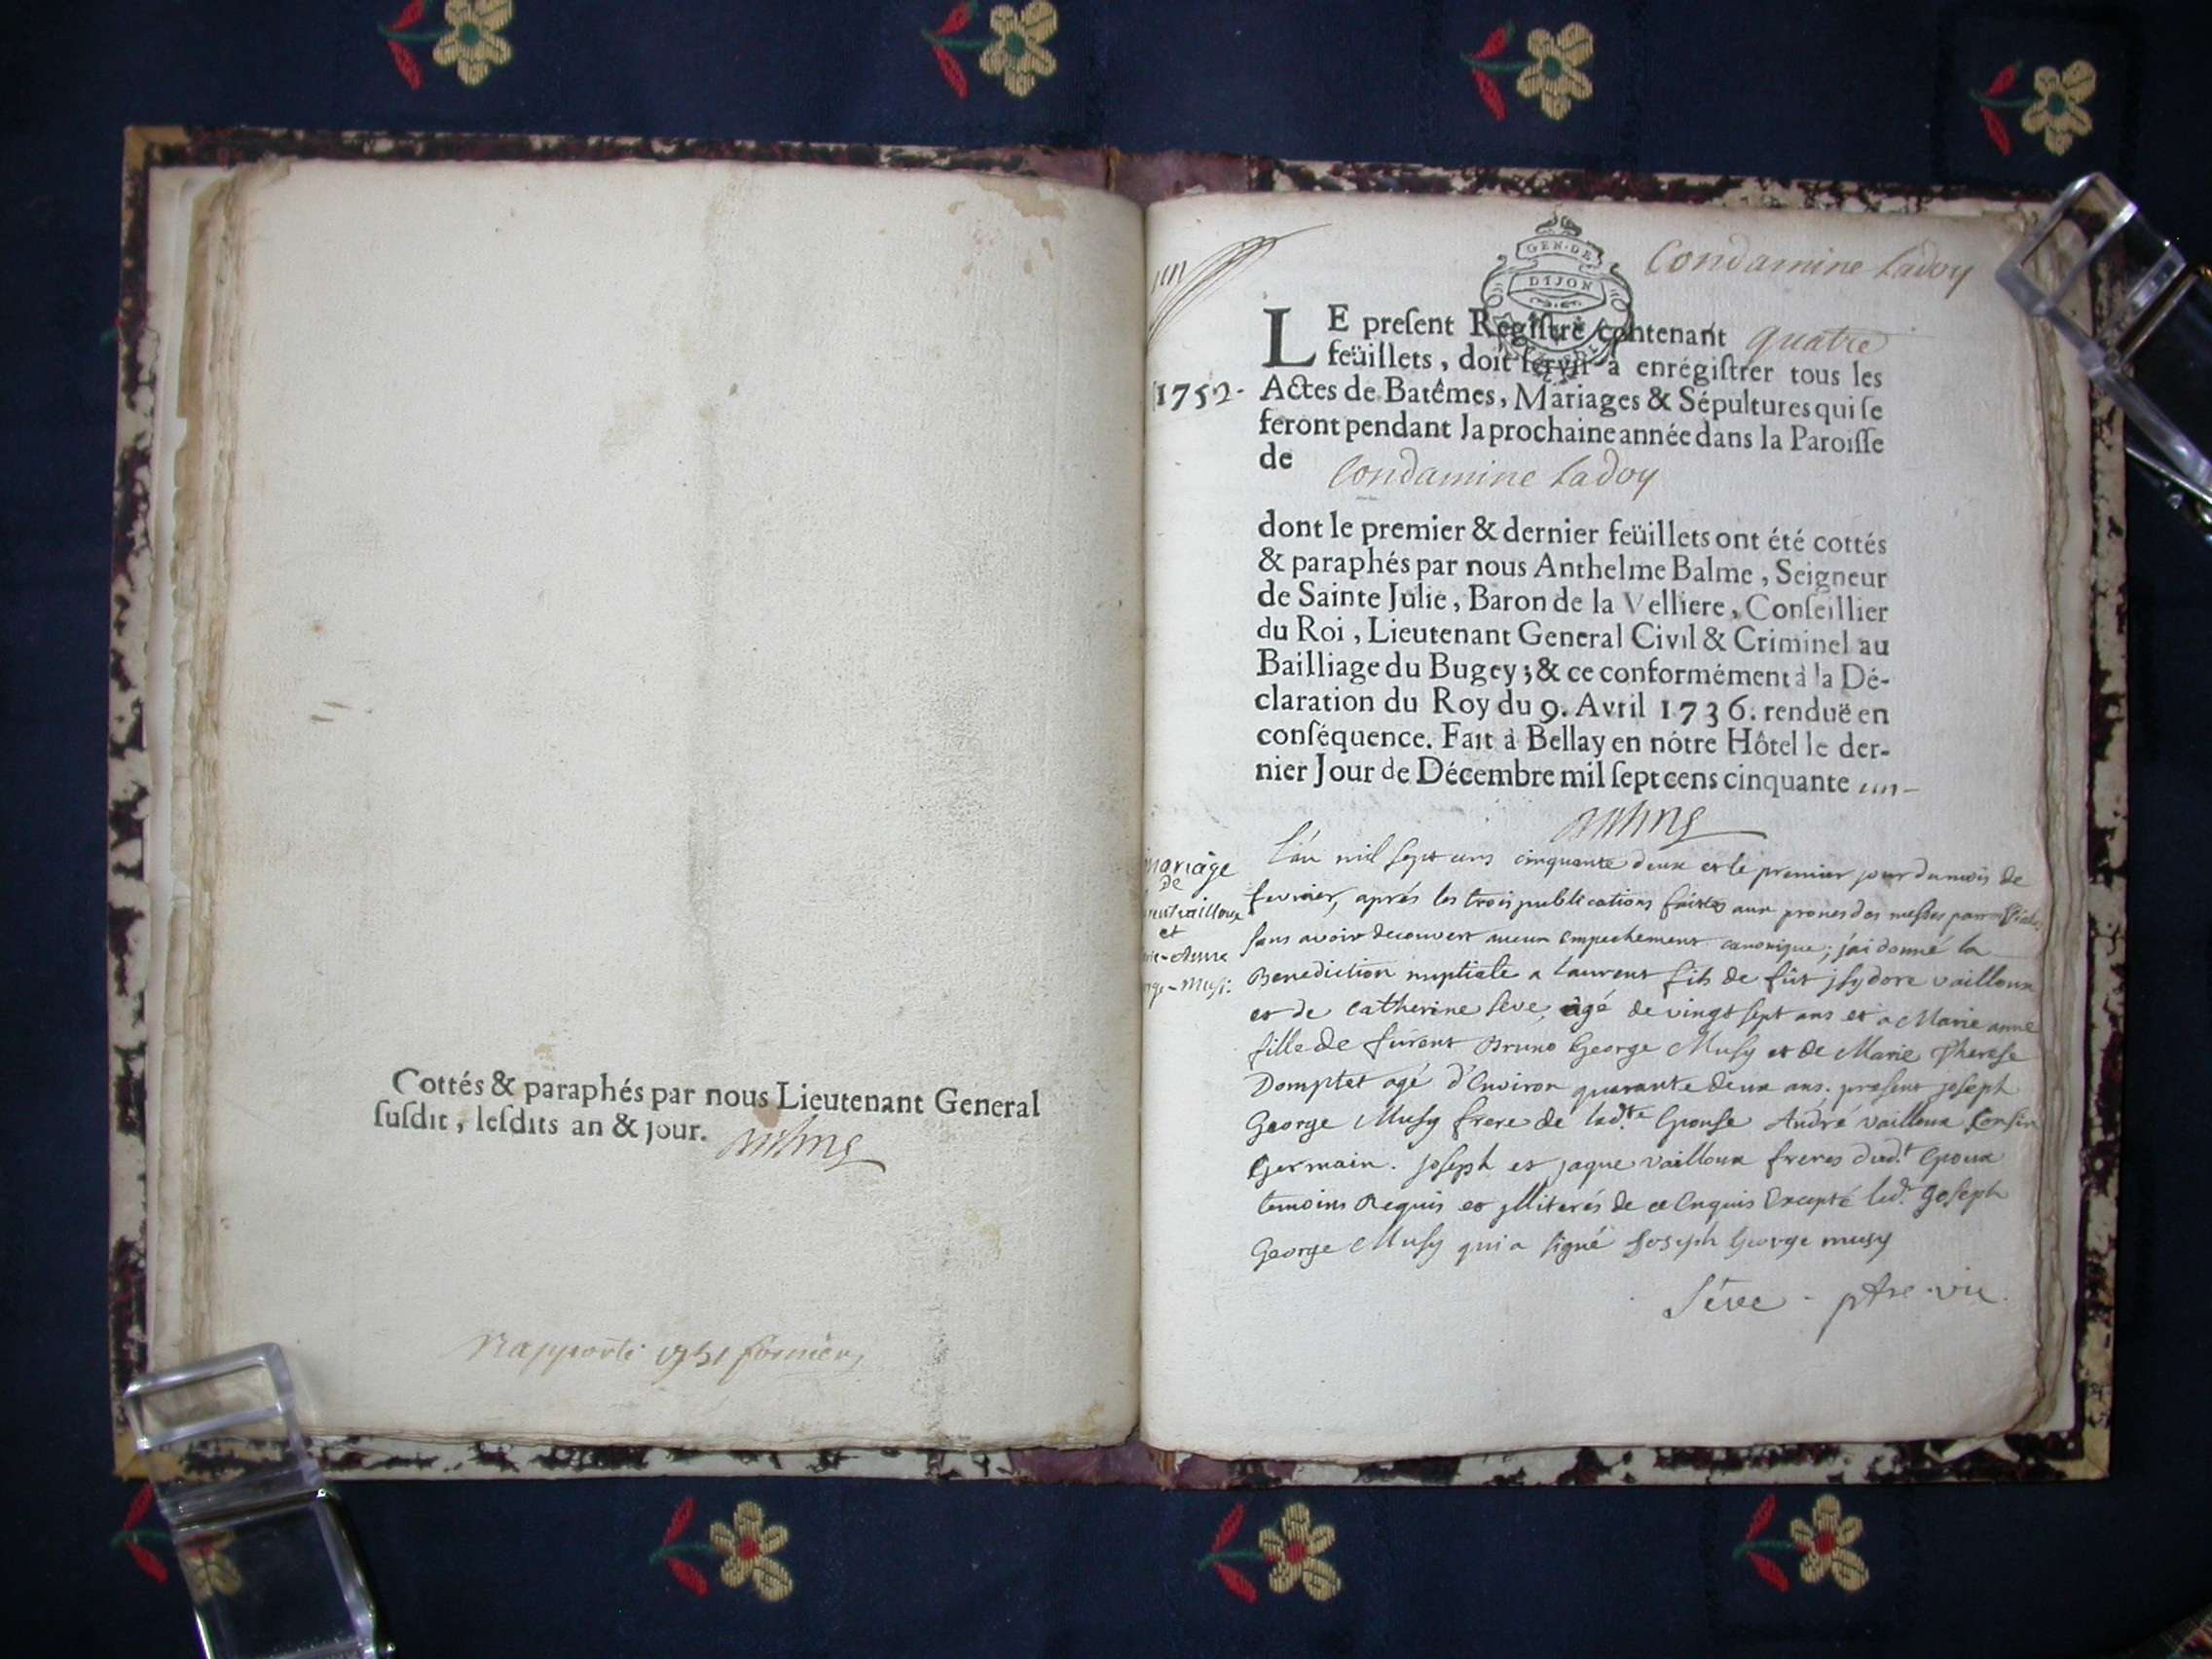 Cottés & paraphés par nous Lieutenant General
ſuſdit, leſdits an & jour.
Rapporté 1751
GEN·DE
DIJON
Condamine Ladoy
LE preſent Régiſtre contenant quatre
feüillets, doit ſervir à enrégiſtrer tous les
1752-
Actes de Batêmes, Mariages & Sépultures qui ſe
feront pendant la prochaine année dans la Paroiſſe
de Condamine Ladoy
dont le premier & dernier feüillets ont été cottés
& paraphés par nous Anthelme Balme, Seigneur
de Sainte Julie, Baron de la Velliere, Conſeillier
du Roi, Lieutenant General Civil & Criminel au
Bailliage du Bugey; & ce conformément à la Dé-
claration du Roy du 9. Avril 1736. renduë en
conſéquence. Fait à Bellay en nôtre Hôtel le der-
nier Jour de Décembre mil ſept cens cinquante un-
mariage
de
vailloux
et
Anne
Musi:
L'an mil sept cens cinquante deux et le premier jour du mois de
fevrier, aprés les trois publications faites aux prones des messes paroissiales
sans avoir decouvert aucun empechement canonique; j'ai donné la
Benediction nuptiale a Laurent fils de fût jsydore vailloux
et de Catherine Seve, âgé de vingt sept ans et a Marie anne
fille de furent Bruno George Musy et de Marie Therese
Domptet agé d'Environ quarante deux ans; present joseph
George Musy frere de lad.te Epouse André vailloux Cousin
Germain. Joseph et jaque vailloux freres dud.t Epoux
temoins Requis et jlliterés de ce Enquis Excepté led.t Joseph
George Musy qui a signé Joseph George musy
Séve - ptre vic.